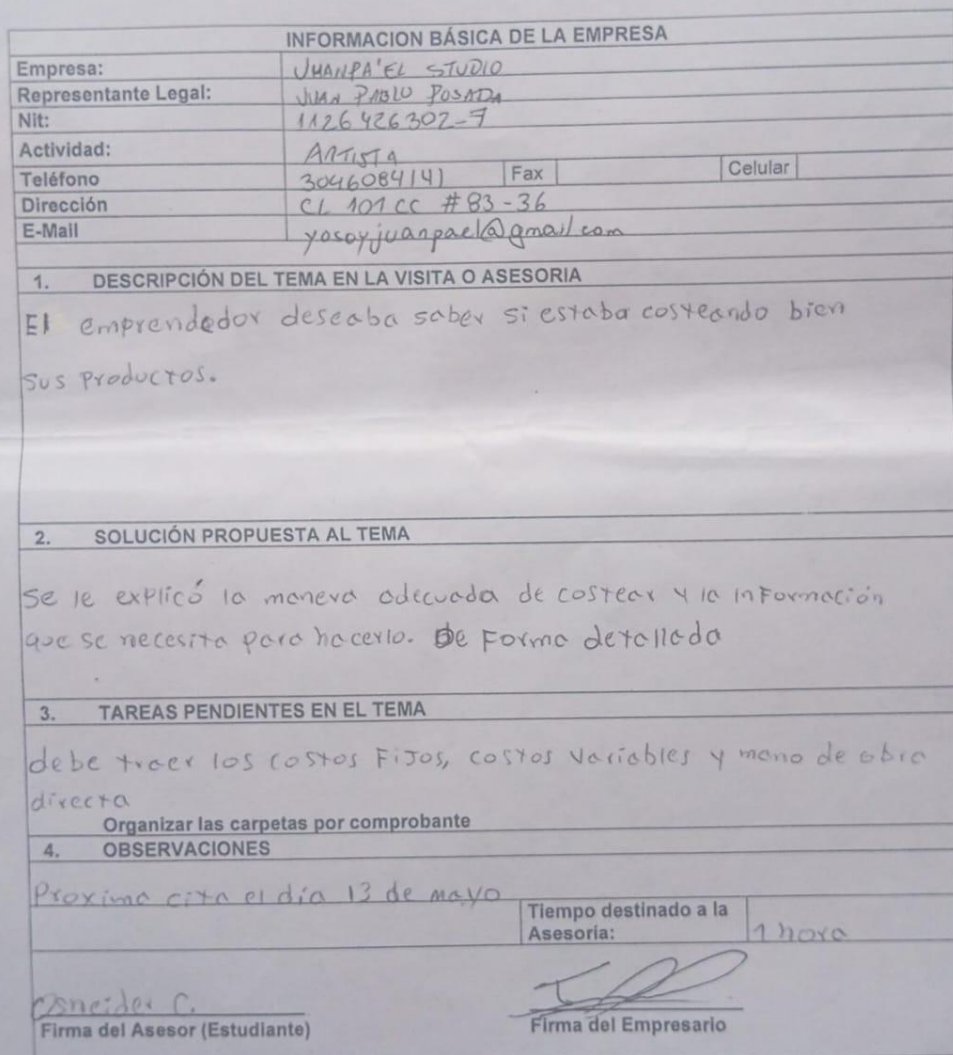 INFORMACION BÁSICA DE LA EMPRESA
Empresa: JUANPA'EL STUDIO
Representante Legal: JUAN PABLO POSADA
Nit: 1126426302-7
Actividad: ARTISTA
Teléfono 3046084141 Fax Celular
Dirección CL 101 CC #83-36
E-Mail yosoyjuanpael@gmail.com
1. DESCRIPCIÓN DEL TEMA EN LA VISITA O ASESORIA
El emprendedor deseaba saber si estaba costeando bien
sus productos.
2. SOLUCIÓN PROPUESTA AL TEMA
Se le explicó la manera adecuada de costear y la información
que se necesita para hacerlo. De Forma detallada
3. TAREAS PENDIENTES EN EL TEMA
debe traer los costos Fijos, costos variables y mano de obra
directa
Organizar las carpetas por comprobante
4. OBSERVACIONES
Proxima cita el día 13 de mayo
Tiempo destinado a la
Asesoría: 1 hora
Osneider C.
Firma del Asesor (Estudiante) Firma del Empresario